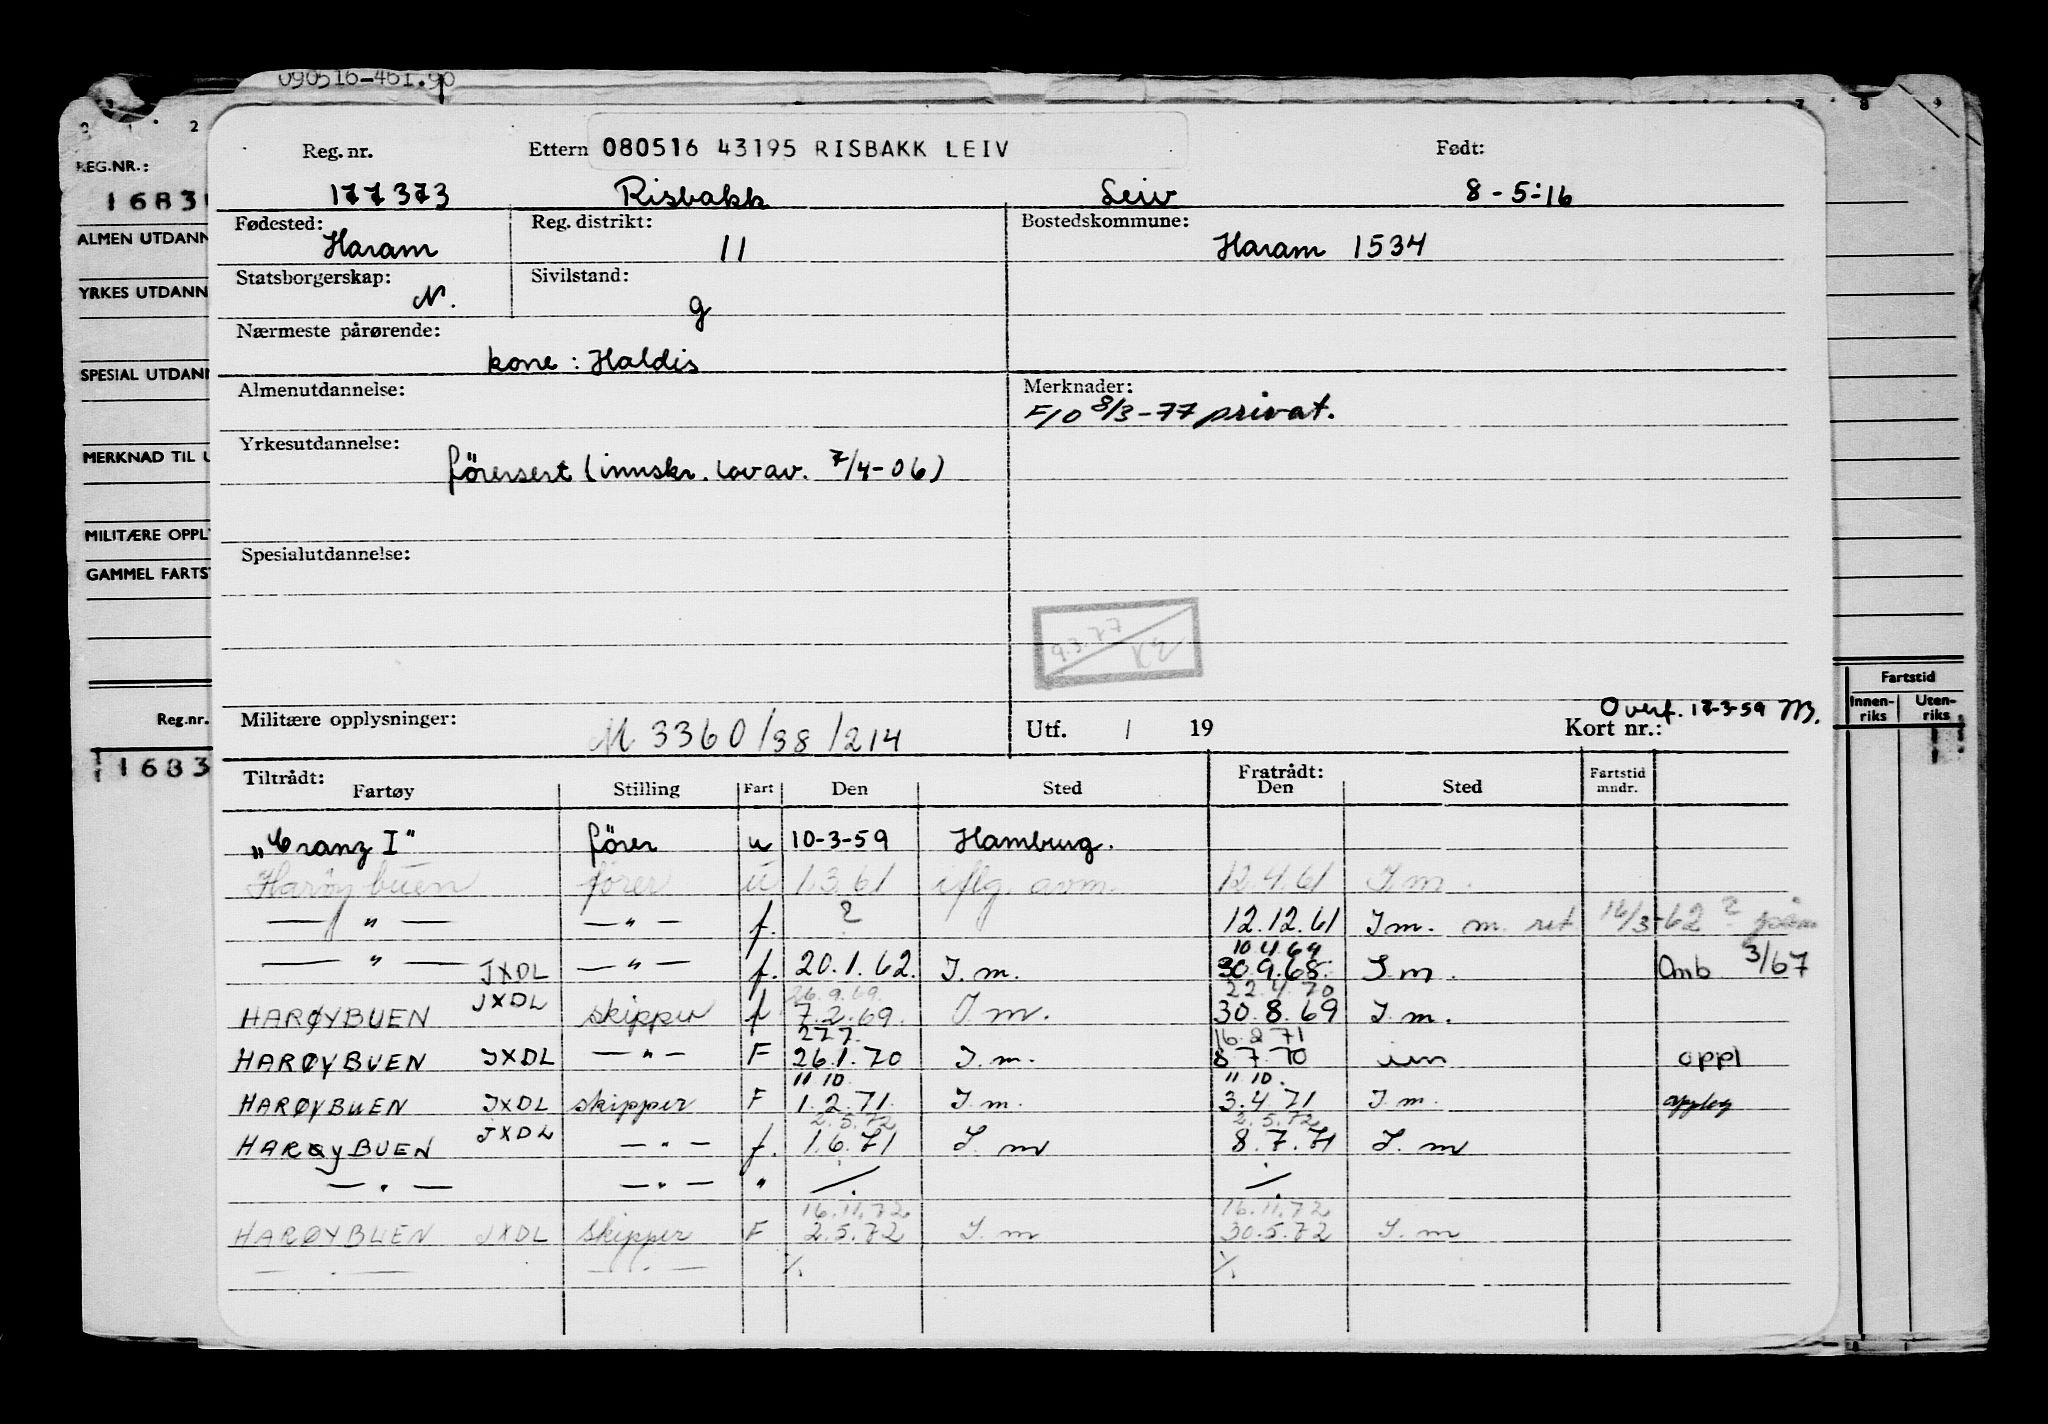 090516-461.90
REG.NR.:
1683
ALMEN UTDANN
YRKES UTDANN
SPESIAL UTDANN
MERKNAD TIL U
MILITÆRE OPPL
GAMMEL FARTS
Reg.nr.
1683
Fartstid
Innen-riks Uten-riks
Reg. nr. Ettern 080516 43195 RISBAKK LEIV Født:
177373 Risbakk Leiv 8-5-16
Fødested: Reg. distrikt: Bostedskommune:
Haram 11 Haram 1534
Statsborgerskap: Sivilstand:
N. g
Nærmeste pårørende:
kone: Haldis
Almenutdannelse: Merknader:
F/O 8/3-77 privat.
Yrkesutdannelse:
førersert (innskr. lov av. 7/4-06)
Spesialutdannelse:
9.3.77
Overf. 17-3-59 M.
Militære opplysninger: M 3360/38/214 Utf. / 19 Kort nr.:
Tiltrådt: Fratrådt: Fartstid
Fartøy Stilling Fart Den Sted Den Sted mndr.
"Cranz I" fører u 10-3-59 Hamburg.
Harøybuen fører u 1.3.61 iflg. avm. 12.4.61 I.m.
— " — — " — f. ? 12.12.61 I m. m. ret 16/3-62 ?
10.4.64
— " — JXDL — " — f. 20.1.62. I.m. 30.9.68. I.m. Omb 3/67
26.9.69. 22.4.70
HARØYBUEN JXDL skipper f 7.2.69. I.m. 30.8.69 I.m.
27.7. 16.2 71
HARØYBUEN JXDL — " — F 26.1.70 I.m. 8 7.70 im oppl
11 10. 11 10.
HARØYBUEN JXDL skipper F 1.2.71. I.m. 3.4.71 I.m. opplag
2.5.72 2.5.72
HARØYBUEN JXDL — " — f. 1.6.71 I.m 8.7.71 I.m
— " — — " — " ./. ./.
16.11.72 16.11.72
HARØYBUEN JXDL skipper F 2.5.72 I.m 30.5.72 I.m
— " — — " — ./. ./.